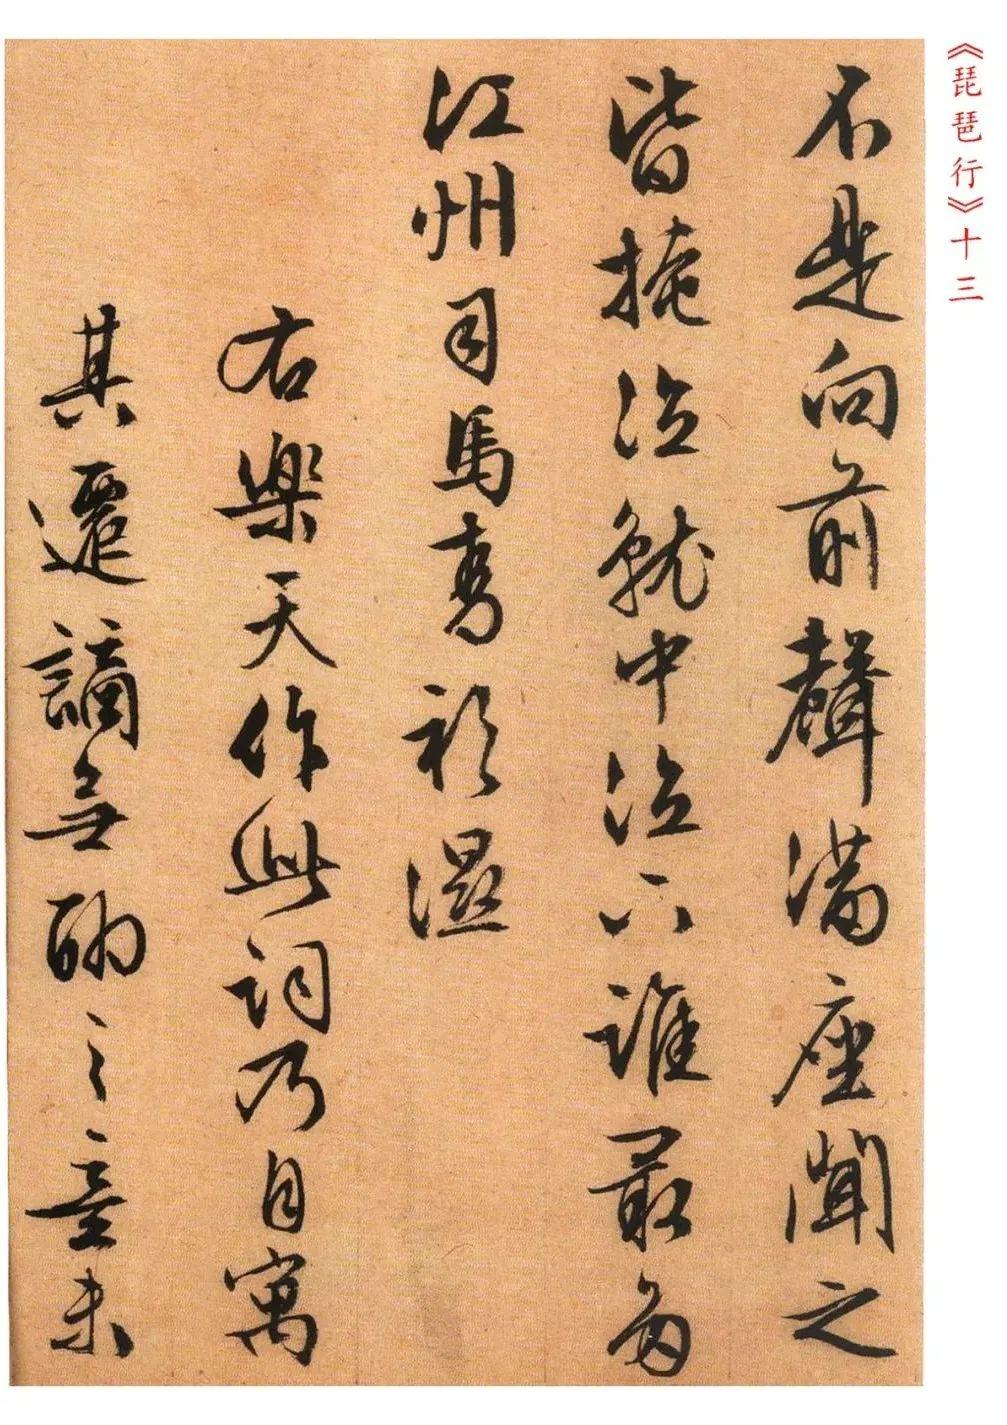 《琵琶行》十三
不是向前聲滿座聞之
皆掩泣就中泣下誰最多
江州司馬青衫濕
右樂天作此詞乃自寓
其遷謫無聊之意未